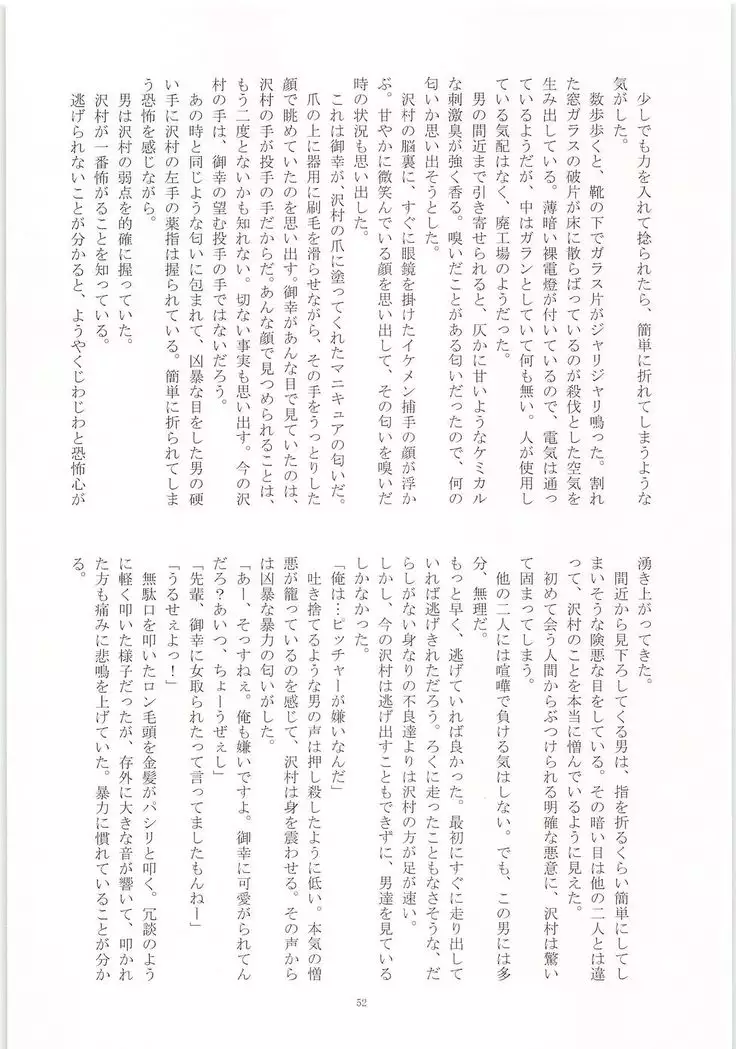 少しでも力を入れて捻られたら、簡単に折れてしまうような
気がした。
　数歩歩くと、靴の下でガラス片がジャリジャリ鳴った。割れ
た窓ガラスの破片が床に散らばっているのが殺伐とした空気を
生み出している。薄暗い裸電燈が付いているので、電気は通っ
ているようだが、中はガランとしていて何も無い。人が使用し
ている気配はなく、廃工場のようだった。
　男の間近まで引き寄せられると、仄かに甘いようなケミカル
な刺激臭が強く香る。嗅いだことがある匂いだったので、何の
匂いか思い出そうとした。
　沢村の脳裏に、すぐに眼鏡を掛けたイケメン捕手の顔が浮か
ぶ。甘やかに微笑んでいる顔を思い出して、その匂いを嗅いだ
時の状況も思い出した。
　これは御幸が、沢村の爪に塗ってくれたマニキュアの匂いだ。
　爪の上に器用に刷毛を滑らせながら、その手をうっとりした
顔で眺めていたのを思い出す。御幸があんな目で見ていたのは、
沢村の手が投手の手だからだ。あんな顔で見つめられることは、
もう二度とないかも知れない。切ない事実も思い出す。今の沢
村の手は、御幸の望む投手の手ではないだろう。
　あの時と同じような匂いに包まれて、凶暴な目をした男の硬
い手に沢村の左手の薬指は握られている。簡単に折られてしま
う恐怖を感じながら。
　男は沢村の弱点を的確に握っていた。
　沢村が一番怖がることを知っている。
　逃げられないことが分かると、ようやくじわじわと恐怖心が
湧き上がってきた。
　間近から見下ろしてくる男は、指を折るくらい簡単にしてし
まいそうな険悪な目をしている。その暗い目は他の二人とは違
って、沢村のことを本当に憎んでいるように見えた。
　初めて会う人間からぶつけられる明確な悪意に、沢村は驚い
て固まってしまう。
　他の二人には喧嘩で負ける気はしない。でも、この男には多
分、無理だ。
　もっと早く、逃げていれば良かった。最初にすぐに走り出して
いれば逃げきれただろう。ろくに走ったこともなさそうな、だ
らしがない身なりの不良達よりは沢村の方が足が速い。
　しかし、今の沢村は逃げ出すこともできずに、男達を見ている
しかなかった。
「俺は…ピッチャーが嫌いなんだ」
　吐き捨てるような男の声は押し殺したように低い。本気の憎
悪が籠っているのを感じて、沢村は身を震わせる。その声から
は凶暴な暴力の匂いがした。
「あー、そっすねぇ。俺も嫌いですよ。御幸に可愛がられてん
だろ？あいつ、ちょーうぜぇし」
「先輩、御幸に女取られたって言ってましたもんねー」
「うるせぇよっ！」
　無駄口を叩いたロン毛頭を金髪がパシリと叩く。冗談のよう
に軽く叩いた様子だったが、存外に大きな音が響いて、叩かれ
た方も痛みに悲鳴を上げていた。暴力に慣れていることが分か
る。
52